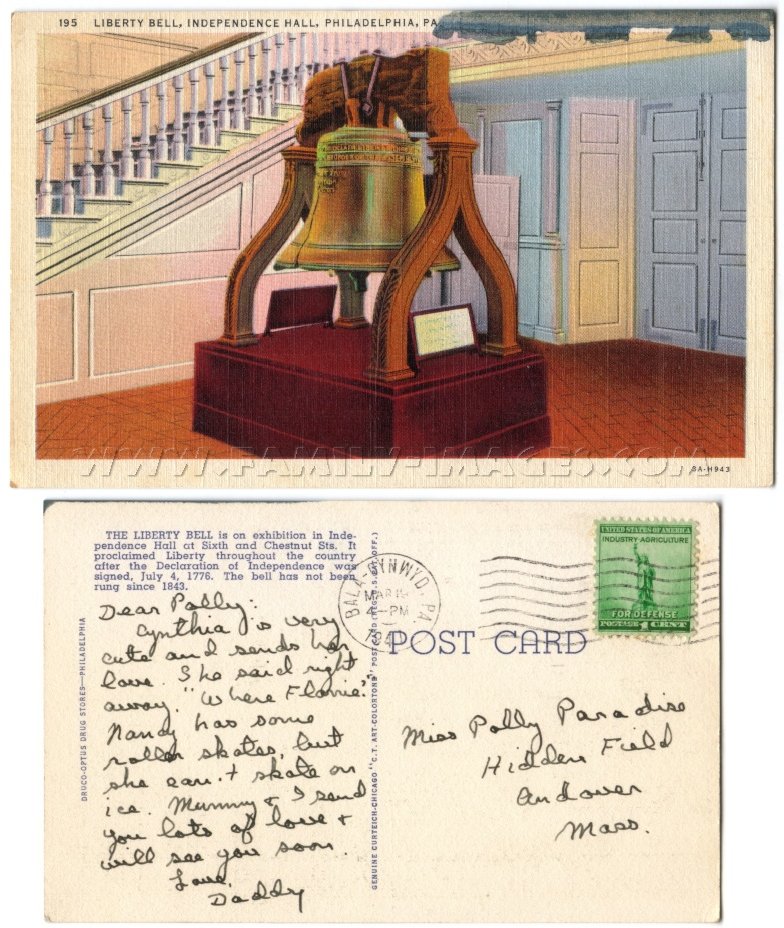 195 LIBERTY BELL, INDEPENDENCE HALL, PHILADELPHIA, PA.
WWW.FAMILY-IMAGES.COM
8A-H943
THE LIBERTY BELL is on exhibition in Inde-
pendence Hall at Sixth and Chestnut Sts. It
proclaimed Liberty throughout the country
after the Declaration of Independence was
signed, July 4, 1776. The bell has not been
rung since 1843.
Dear Polly:
Cynthia is very
cute and sends her
love. She said right
away. "Where Florrie."
Nancy has some
roller skates, but
she can't skate on
ice. Mummy & I send
you lots of love &
will see you soon.
Love,
Daddy
DRUCO-OPTUS DRUG STORES—PHILADELPHIA
GENUINE CURTEICH-CHICAGO "C.T. ART-COLORTONE" POST CARD (REG. U.S. PAT. OFF.)
BALA-CYNWYD, PA.
MAR
4-PM
POST CARD
UNITED STATES OF AMERICA
INDUSTRY AGRICULTURE
FOR DEFENSE
POSTAGE 1 CENT
Miss Polly Paradise
Hidden Field
Andover
Mass.